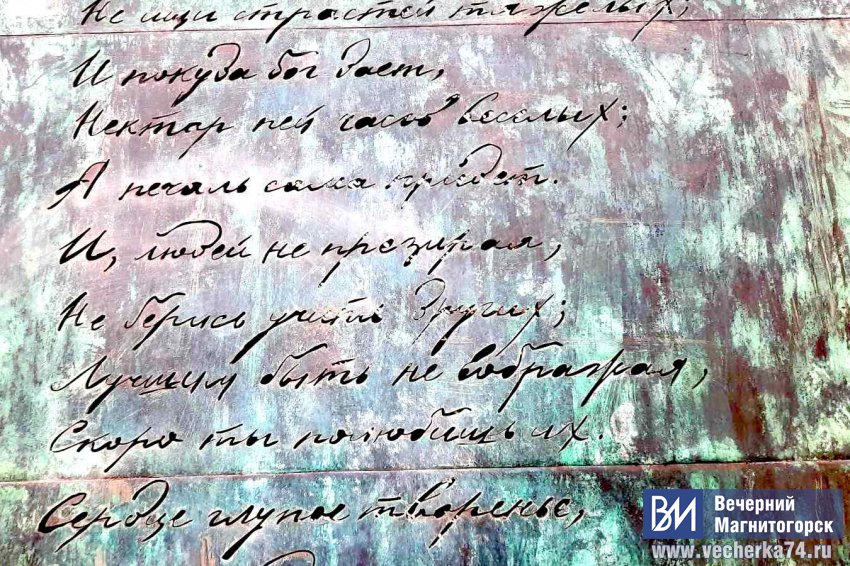 Не ищи страстей тяжелых;
И покуда бог дает,
Нектар пей часов веселых;
А печаль сама придет.
И, людей не презирая,
Не берись учить других;
Лучшим быть не вображая,
Скоро ты полюбишь их.
Сердце глупое творенье,
ВИ Вечерний
Магнитогорск
www.vecherka74.ru